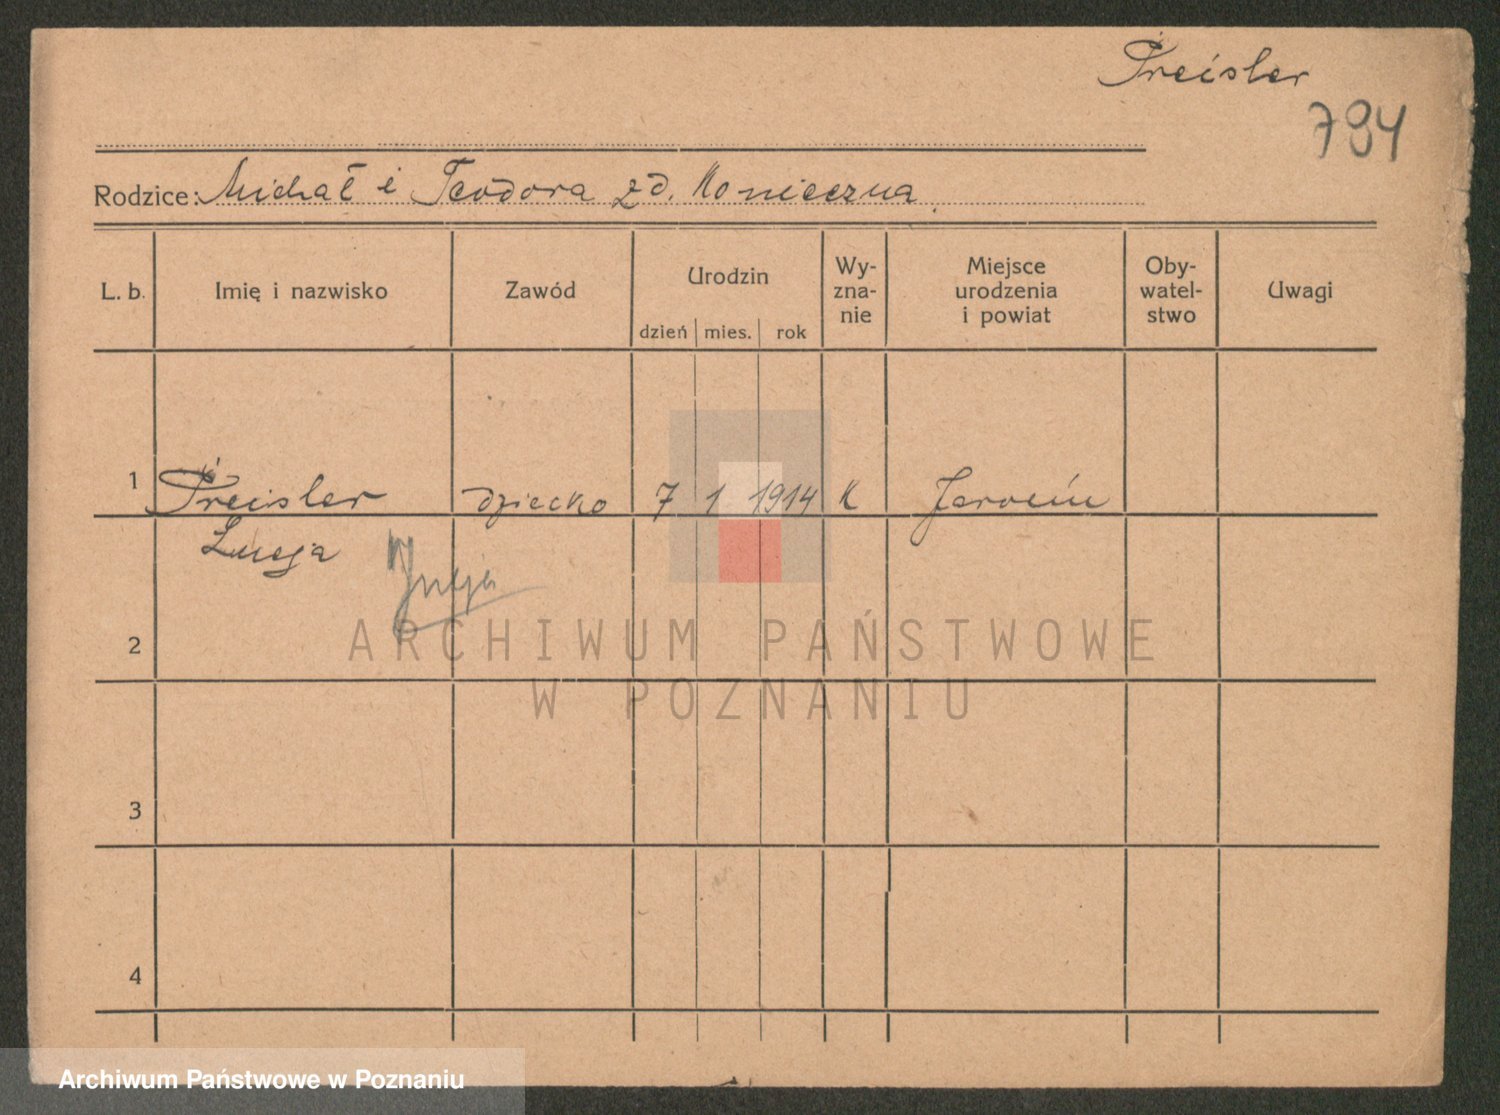 Preisler
794
Rodzice: Michał i Teodora zd. Konieczna
L. b.
Imię i nazwisko
Zawód
Urodzin
dzień mies. rok
Wy-
zna-
nie
Miejsce
urodzenia
i powiat
Oby-
watel-
stwo
Uwagi
1 Preisler dziecko 7 1 1914 K Jarocin
Łucja
2
3
4
ARCHIWUM PAŃSTWOWE
W POZNANIU
Archiwum Państwowe w Poznaniu